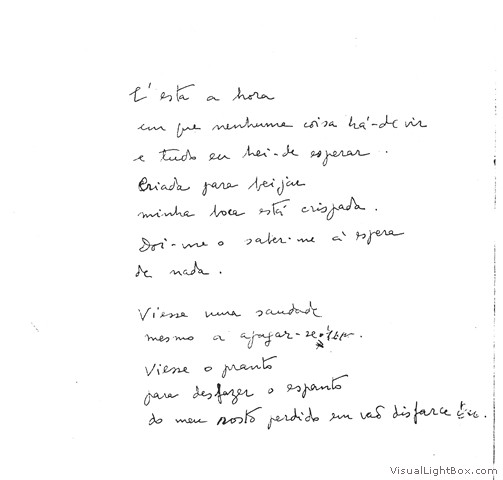 E' esta a hora
em que nenhuma coisa há-de vir
e tudo eu hei-de esperar.
Criada para beijar
minha boca está crispada.
Doi-me o saber-me à espera
de nada.
Viesse uma saudade
mesmo a apagar-se
Viesse o pranto
para desfazer o espanto
do meu rosto perdido em vão disfarce
VisualLightBox.com